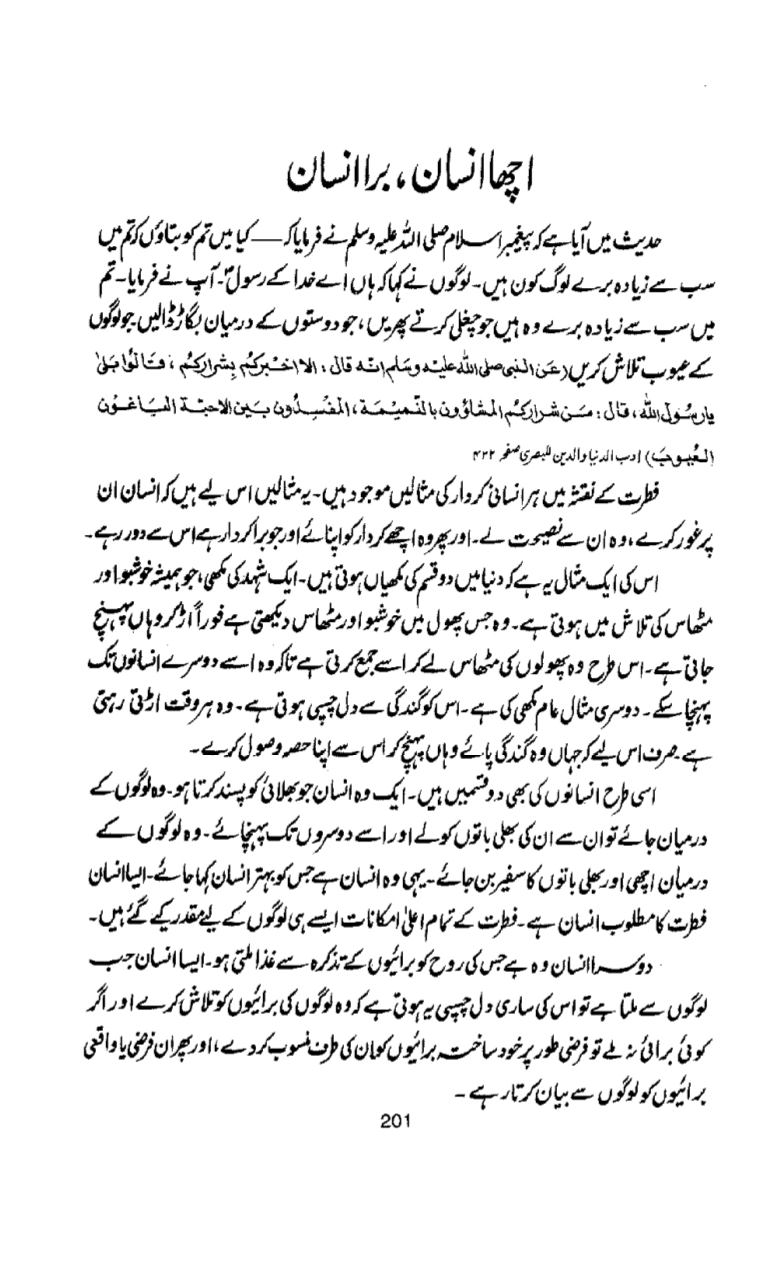 اچھا انسان، برا انسان
حدیث میں آیا ہے کہ پیغمبر اسلام صلی اللہ علیہ وسلم نے فرمایا کہ — کیا میں تم کو بتاؤں کہ تم میں
سب سے زیادہ برے لوگ کون ہیں۔ لوگوں نے کہا کہ ہاں اے خدا کے رسولؐ۔ آپ نے فرمایا۔ تم
میں سب سے زیادہ برے وہ ہیں جو چغلی کرتے پھریں، جو دوستوں کے درمیان بگاڑ ڈالیں جو لوگوں
کے عیوب تلاش کریں (عَن النبی صلی اللہ علیہ وسلم انہ قال : الا اخبرکم بشرارکم ، قالوا بلیٰ
یارسول اللہ ، قال : مَن شرارکم المشاؤون بالنمیمۃ ، المفسدون بین الاحبۃ الباغون
العیوبَ) ادب الدنیا والدین للبصری صفحہ ۴۲۲
فطرت کے نقشہ میں ہر انسانی کردار کی مثالیں موجود ہیں۔ یہ مثالیں اس لیے ہیں کہ انسان ان
پر غور کرے، وہ ان سے نصیحت لے۔ اور پھر وہ اچھے کردار کو اپنائے اور جو برا کردار ہے اس سے دور رہے۔
اس کی ایک مثال یہ ہے کہ دنیا میں دو قسم کی مکھیاں ہوتی ہیں۔ ایک شہد کی مکھی، جو ہمیشہ خوشبو اور
مٹھاس کی تلاش میں ہوتی ہے۔ وہ جس پھول میں خوشبو اور مٹھاس دیکھتی ہے فوراً اڑ کر وہاں پہنچ
جاتی ہے۔ اس طرح وہ پھولوں کی مٹھاس لے کر اسے جمع کرتی ہے تاکہ وہ اسے دوسرے انسانوں تک
پہنچا سکے۔ دوسری مثال عام مکھی کی ہے۔ اس کو گندگی سے دل چسپی ہوتی ہے۔ وہ ہر وقت اڑتی رہتی
ہے۔ صرف اس لیے کہ جہاں وہ گندگی پائے وہاں پہنچ کر اس سے اپنا حصہ وصول کرے۔
اسی طرح انسانوں کی بھی دو قسمیں ہیں۔ ایک وہ انسان جو بھلائی کو پسند کرتا ہو۔ وہ لوگوں کے
درمیان جائے تو ان سے ان کی بھلی باتوں کو لے اور اسے دوسروں تک پہنچائے۔ وہ لوگوں کے
درمیان اچھی اور بھلی باتوں کا سفیر بن جائے۔ یہی وہ انسان ہے جس کو بہتر انسان کہا جائے۔ ایسا انسان
فطرت کا مطلوب انسان ہے۔ فطرت کے تمام اعلیٰ امکانات ایسے ہی لوگوں کے لیے مقدر کیے گئے ہیں۔
دوسرا انسان وہ ہے جس کی روح کو برائیوں کے تذکرہ سے غذا ملتی ہو۔ ایسا انسان جب
لوگوں سے ملتا ہے تو اس کی ساری دل چسپی یہ ہوتی ہے کہ وہ لوگوں کی برائیوں کو تلاش کرے اور اگر
کوئی برائی نہ ملے تو فرضی طور پر خود ساختہ برائیوں کو ان کی طرف منسوب کر دے، اور پھر ان فرضی یا واقعی
برائیوں کو لوگوں سے بیان کرتا رہے۔
201